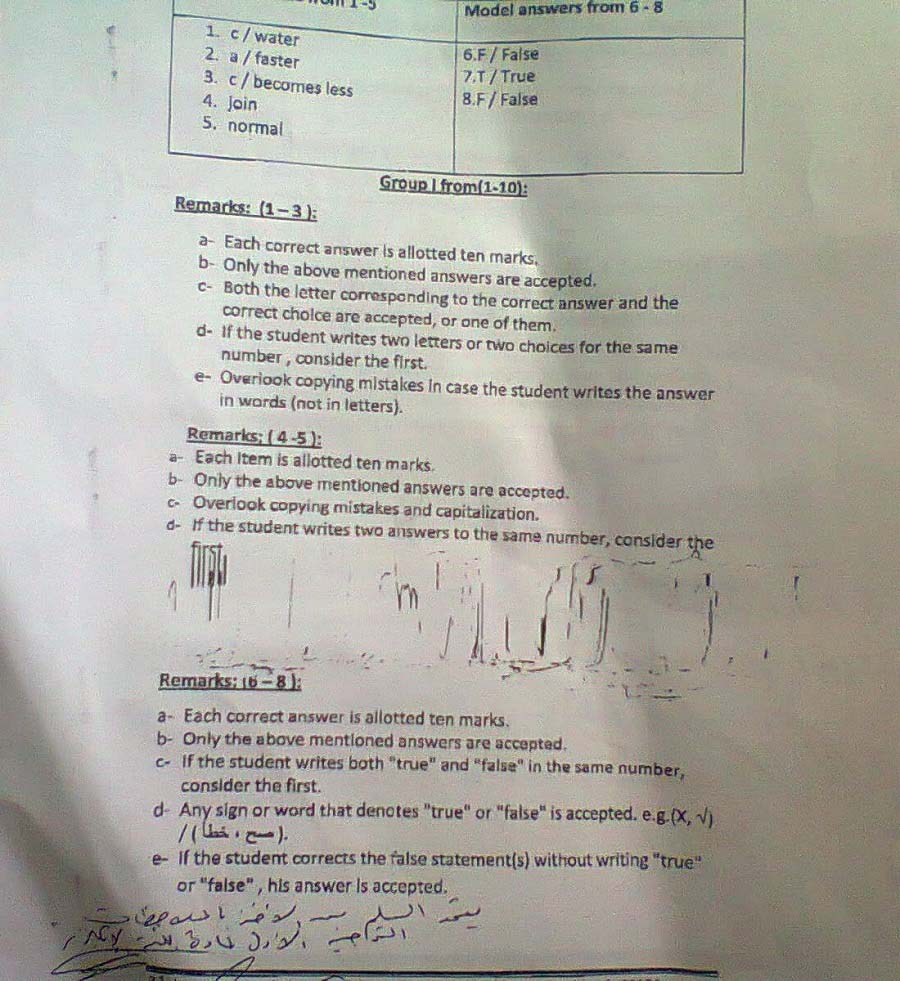 1-5
Model answers from 6 - 8
1. c / water
2. a / faster
3. c / becomes less
4. join
5. normal
6.F / False
7.T / True
8.F / False
Group I from(1-10):
Remarks: (1 – 3 ):
a- Each correct answer is allotted ten marks.
b- Only the above mentioned answers are accepted.
c- Both the letter corresponding to the correct answer and the
correct choice are accepted, or one of them.
d- If the student writes two letters or two choices for the same
number , consider the first.
e- Overlook copying mistakes in case the student writes the answer
in words (not in letters).
Remarks: ( 4 -5 ):
a- Each item is allotted ten marks.
b- Only the above mentioned answers are accepted.
c- Overlook copying mistakes and capitalization.
d- If the student writes two answers to the same number, consider the
first.
Remarks: (6 – 8 ):
a- Each correct answer is allotted ten marks.
b- Only the above mentioned answers are accepted.
c- If the student writes both "true" and "false" in the same number,
consider the first.
d- Any sign or word that denotes "true" or "false" is accepted. e.g.(X, √)
/ ( صح ، خطأ ).
e- If the student corrects the false statement(s) without writing "true"
or "false" , his answer is accepted.